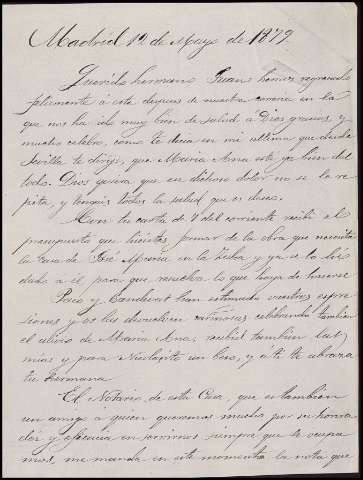 Madrid 12 de Mayo de 1879.
Querido hermano Juan hemos regresado
felizmente á esta despues de nuestra correría en la
que nos ha ido muy bien de salud á Dios gracias, y
mucho celebro, como te decia en mi ultima que desde
Sevilla te dirigí, que Maria Ana esté ya bien del
todo. Dios quiera que su dichoso dolor no se la re-
pita, y tengais todos la salud que os deseo.
Con tu carta de 7 del corriente recibí el
presupuesto que hicistes formar de la obra que necesita
la casa de José Maria en la y ya se lo hé
dado á él para que resuelva lo que haya de hacerse
y han estimado vuestras espre-
siones y os las devuelven cariñosas celebrando tambien
el alivio de Maria Ana; recibid tambien las
mias y para Nicolasito un beso, y á ti te abraza
tu hermana
El Notario de esta Casa, que es tambien
un amigo á quien queremos mucho por su honra-
dez y eficacia en servirnos siempre que le ocupa-
mos, me manda en este momento la nota que